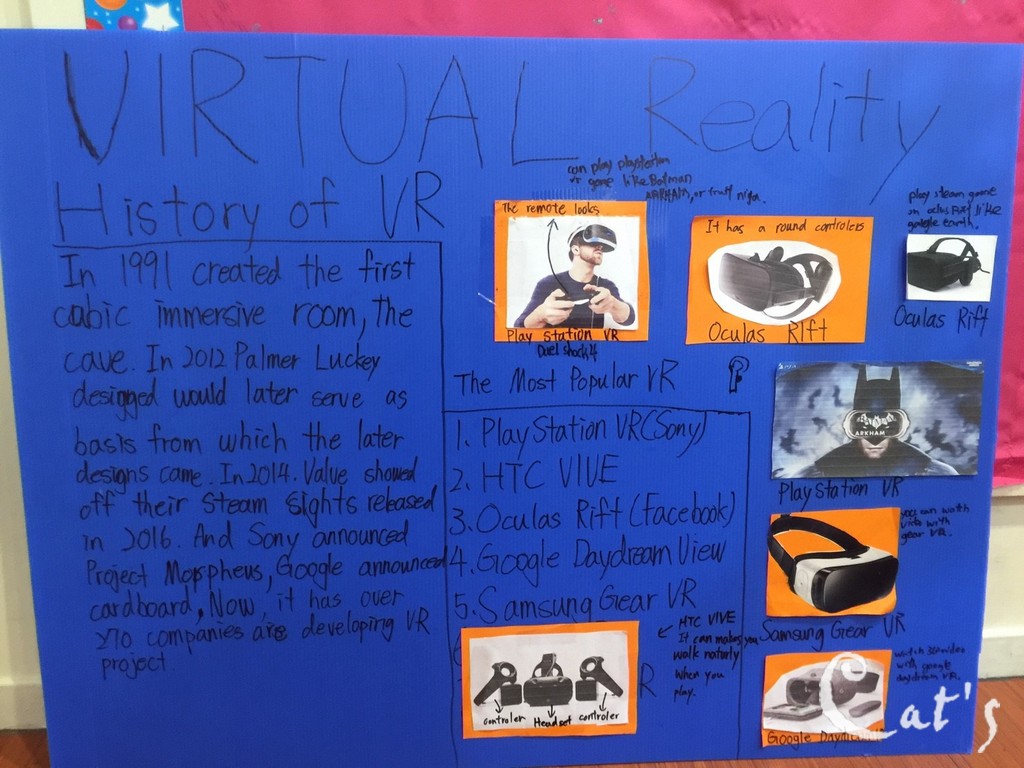 VIRTUAL Reality
History of VR
In 1991 created the first
cubic immersive room, The
cave. In 2012 Palmer Luckey
designed would later serve as
basis from which the later
designs came. In 2014. Value showed
off their Steam Sights released
in 2016. And Sony announced
Project Morpheus, Google announced
cardboard, Now, it has over
companies are developing VR
project.
can play playstation
vr game like Batman
ARKHAM, or fruit ninja.
The remote looks
Play Station VR
Duel shock 4
It has a round controlers
Oculas Rift
play steam game
on oclus Rift like
google earth.
Oculas Rift
The Most Popular VR
1. PlayStation VR(Sony)
2. HTC VIVE
3. Oculas Rift (Facebook)
4. Google Daydream View
5. Samsung Gear VR
R
controler Headset controler
HTC VIVE
It can makes you
walk naturly
when you
play.
PS VR
BATMAN
ARKHAM
PlayStation VR
you can watch
vide with
gear VR.
Samsung Gear VR
watch 360 video
with google
daydream VR.
Google Daydream
Cat's